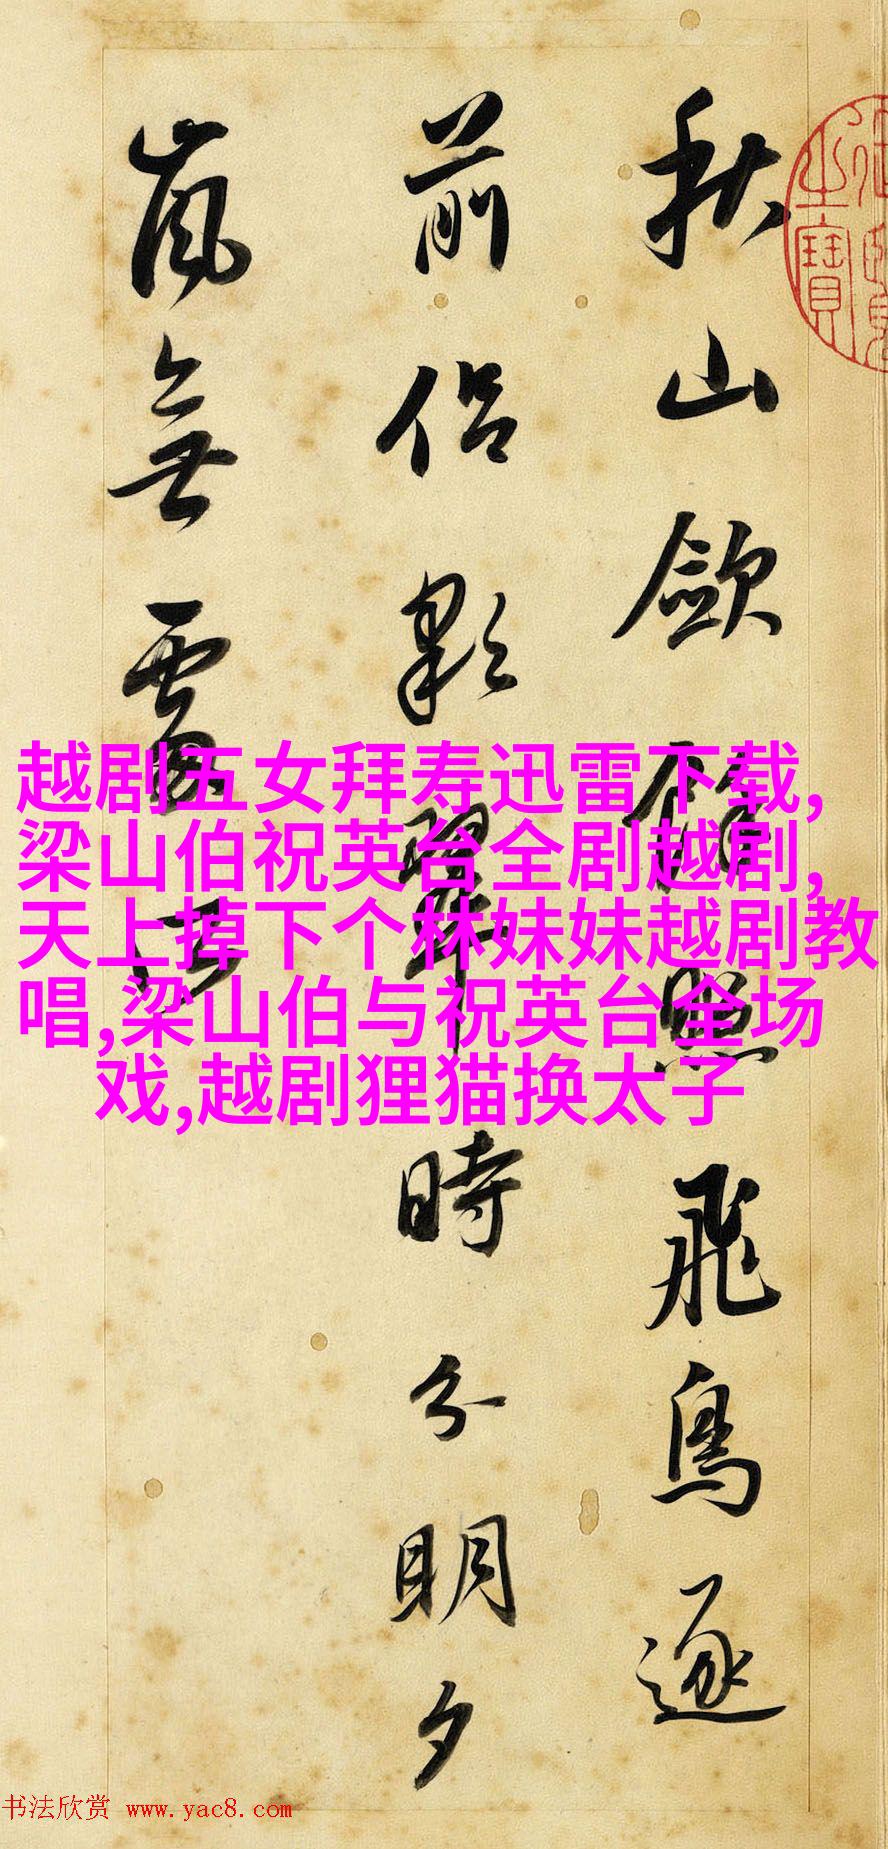 秋山歛餘照飛鳥逐
前侣彩翠時分明夕
嵐無處所
之寶
越剧五女拜寿迅雷下载,
梁山伯祝英台全剧越剧,
天上掉下个林妹妹越剧教
唱,梁山伯与祝英台全场
戏,越剧狸猫换太子
书法欣赏 www.yac8.com